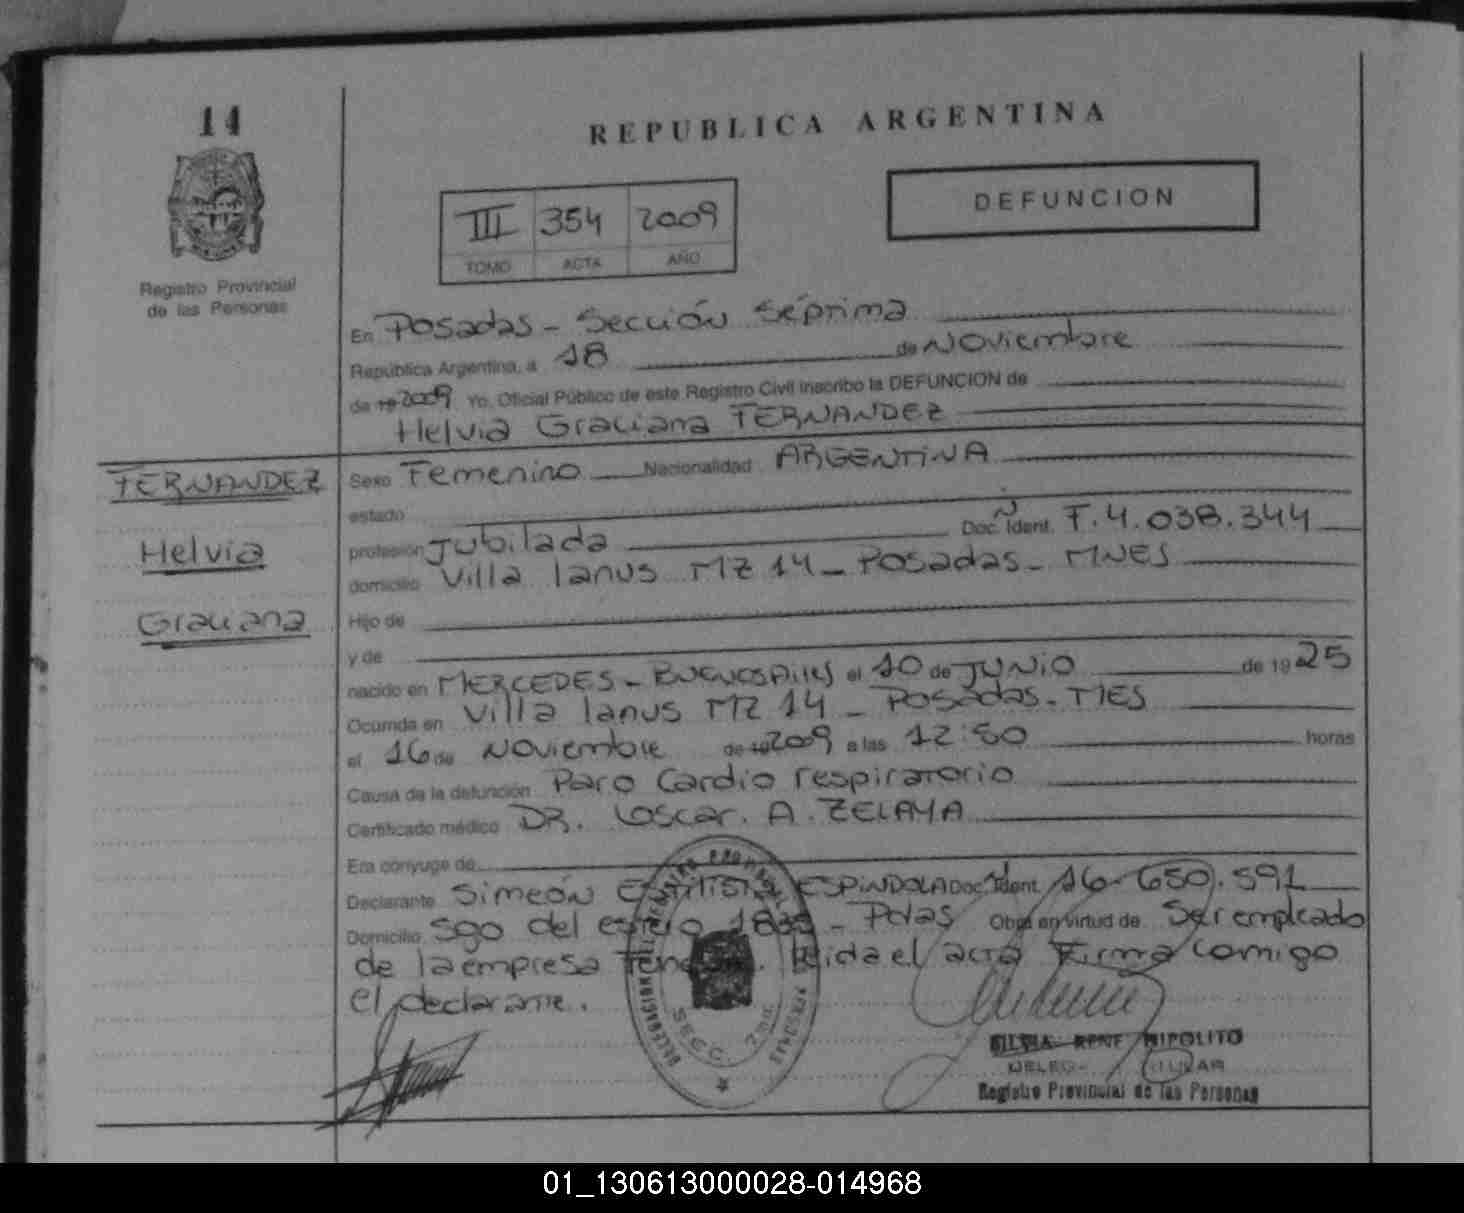 14
REPUBLICA ARGENTINA
DEFUNCION
III 354 2009
TOMO ACTA AÑO
Registro Provincial
de las Personas
En Posadas - Sección Séptima
República Argentina, a 18 de Noviembre
de 19 2009 Yo, Oficial Público de este Registro Civil inscribo la DEFUNCION de
Helvia Graciana FERNANDEZ
FERNANDEZ
Helvia
Graciana
Sexo Femenino Nacionalidad ARGENTINA
estado
profesión Jubilada Doc. Ident. F. 4.038.344
domicilio Villa lanus MZ 14 - Posadas - MNES
Hijo de
y de
nacido en MERCEDES - BUENOS AIRES el 10 de JUNIO de 19 25
Ocurrida en Villa lanus MZ 14 - Posadas - MES
el 16 de Noviembre de 19 2009 a las 12:50 horas
Causa de la defunción Paro Cardio respiratorio
Certificado médico DR. Oscar. A. ZELAYA
Era cónyuge de
Declarante Simeón ESPINDOLA Doc. Ident. 16.650.591
Domicilio Sgo del estero - Pdas Obra en virtud de Ser empleado
de la empresa leida el acta Firma comigo
el declarante.
SECC. 7ma.
RENE HIPOLITO
Registro Provincial de las Personas
01_130613000028-014968